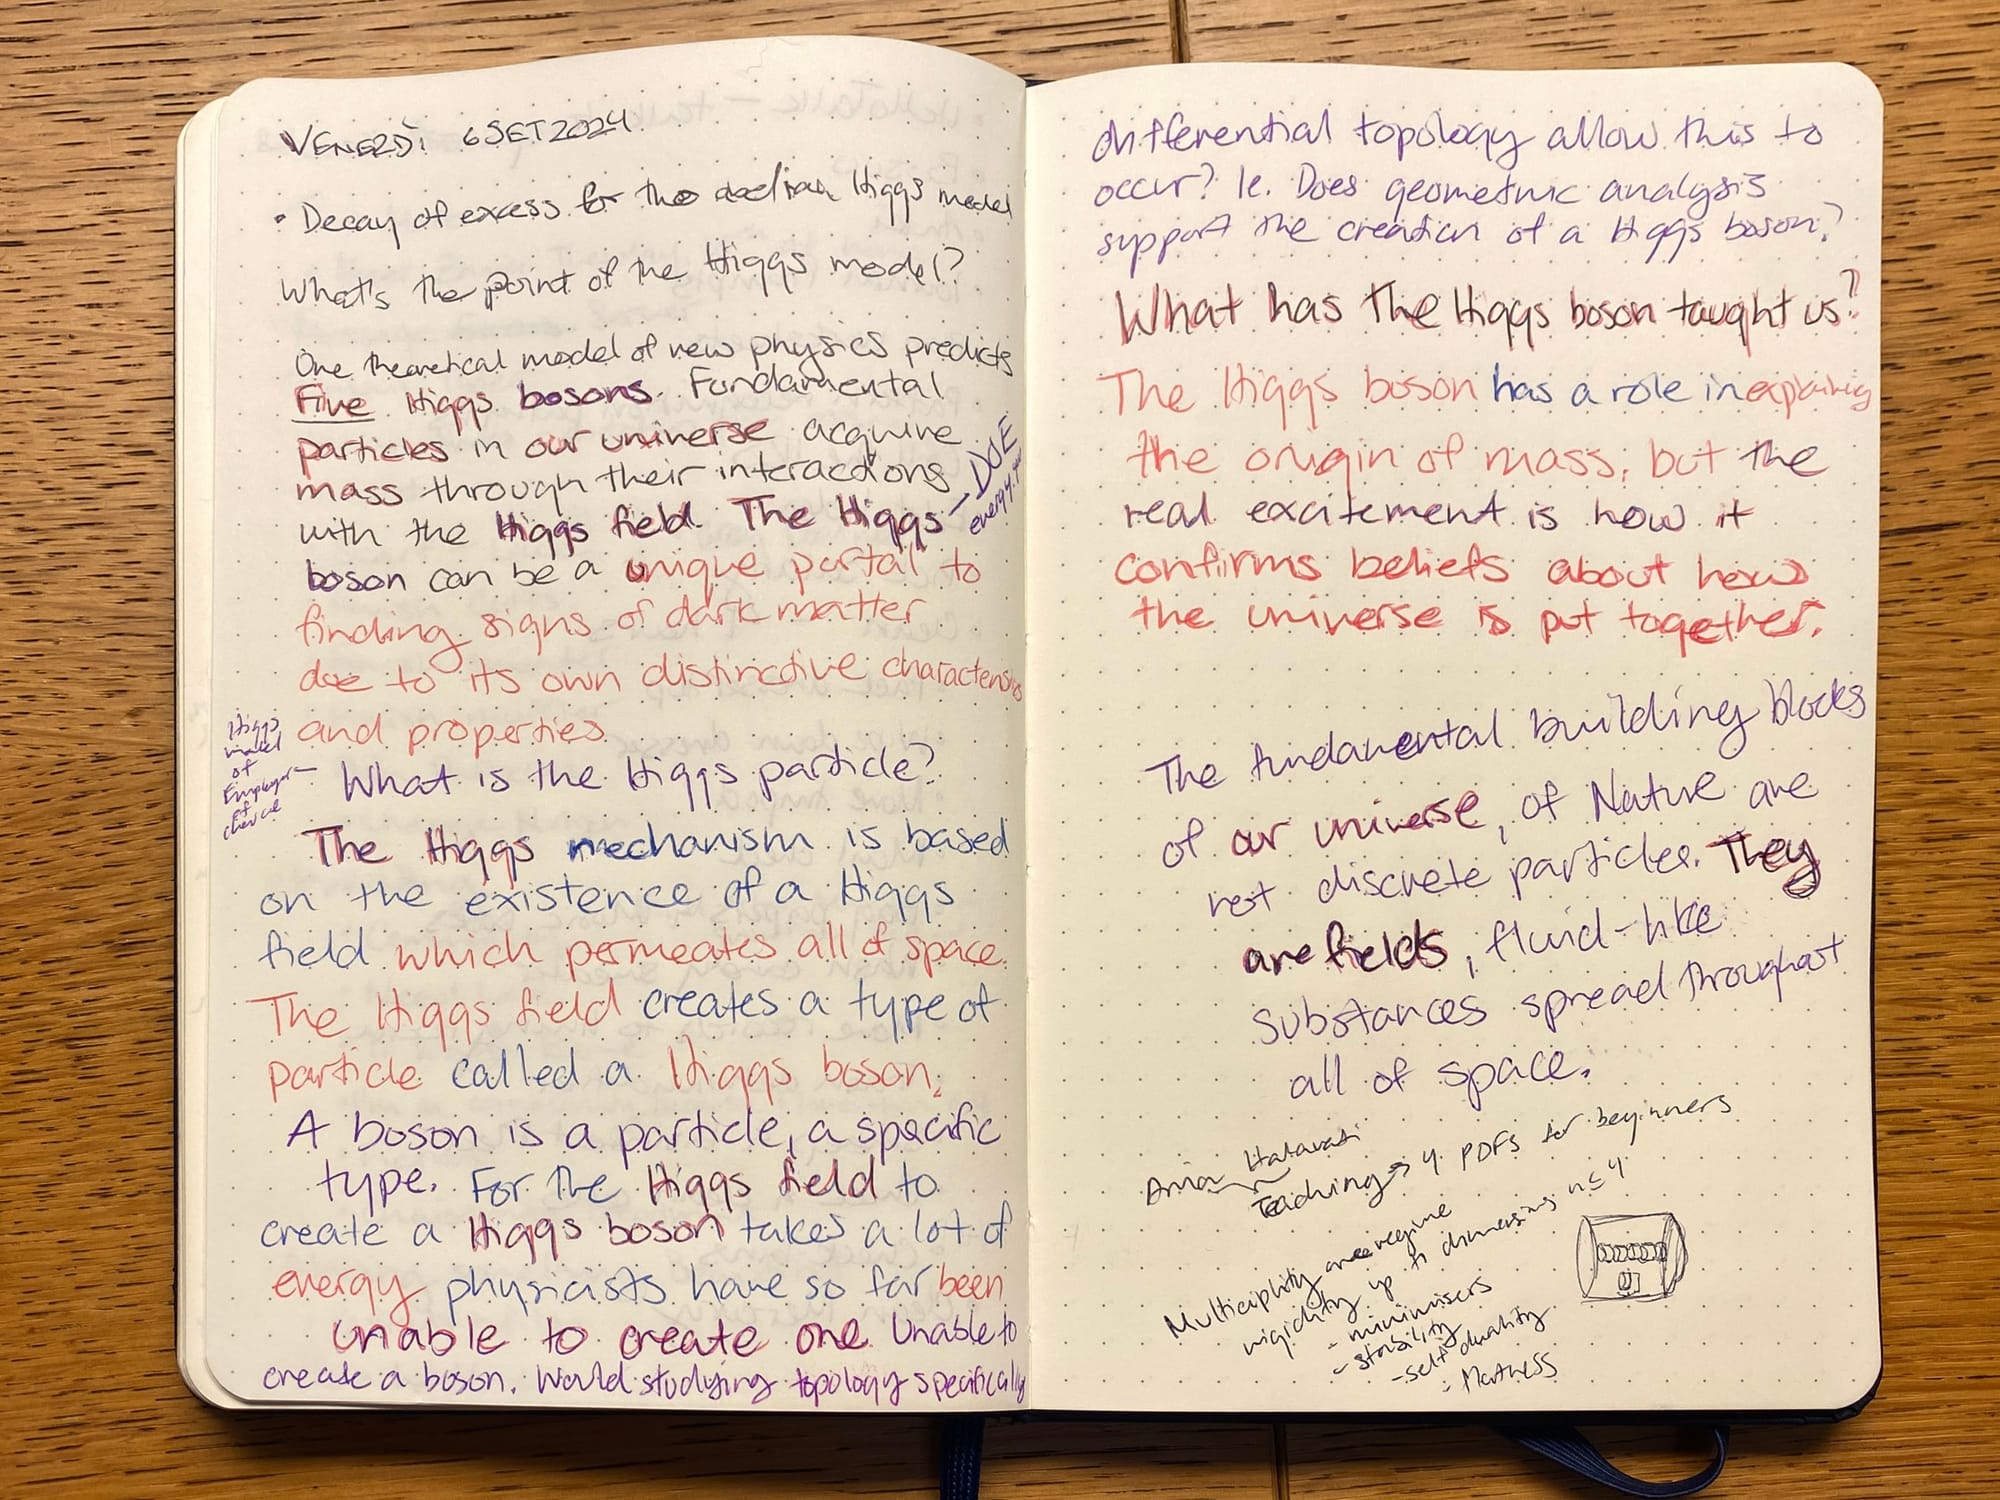 VENERDÌ 6 SET 2024
• Decay of excess for the abelian Higgs model
What's the point of the Higgs model?
One theoretical model of new physics predicts
Five Higgs bosons. Fundamental
particles in our universe acquire
mass through their interactions
with the Higgs field. The Higgs – DOE
energy.
boson can be a unique portal to
finding signs of dark matter
due to its own distinctive characteristics
and properties
Higgs
model
of
of
– What is the Higgs particle?
The Higgs mechanism is based
on the existence of a Higgs
field which permeates all of space.
The Higgs field creates a type of
particle called a Higgs boson.
A boson is a particle, a specific
type. For the Higgs field to
create a Higgs boson takes a lot of
energy physicists have so far been
unable to create one. Unable to
create a boson. Would studying topology specifically
differential topology allow this to
occur? Ie. Does geometric analysis
support the creation of a Higgs boson?
What has The Higgs boson taught us?
The Higgs boson has a role in explaining
the origin of mass, but the
real excitement is how it
confirms beliefs about how
the universe is put together.
The fundamental building blocks
of our universe, of Nature are
not discrete particles. They
are fields, fluid-like
substances spread throughout
all of space.
Teaching → 4 PDFs for beginners
Multiciplity one regime
rigidity up to dimensions n ≤ 4
- minimisers
- stability
- self duality